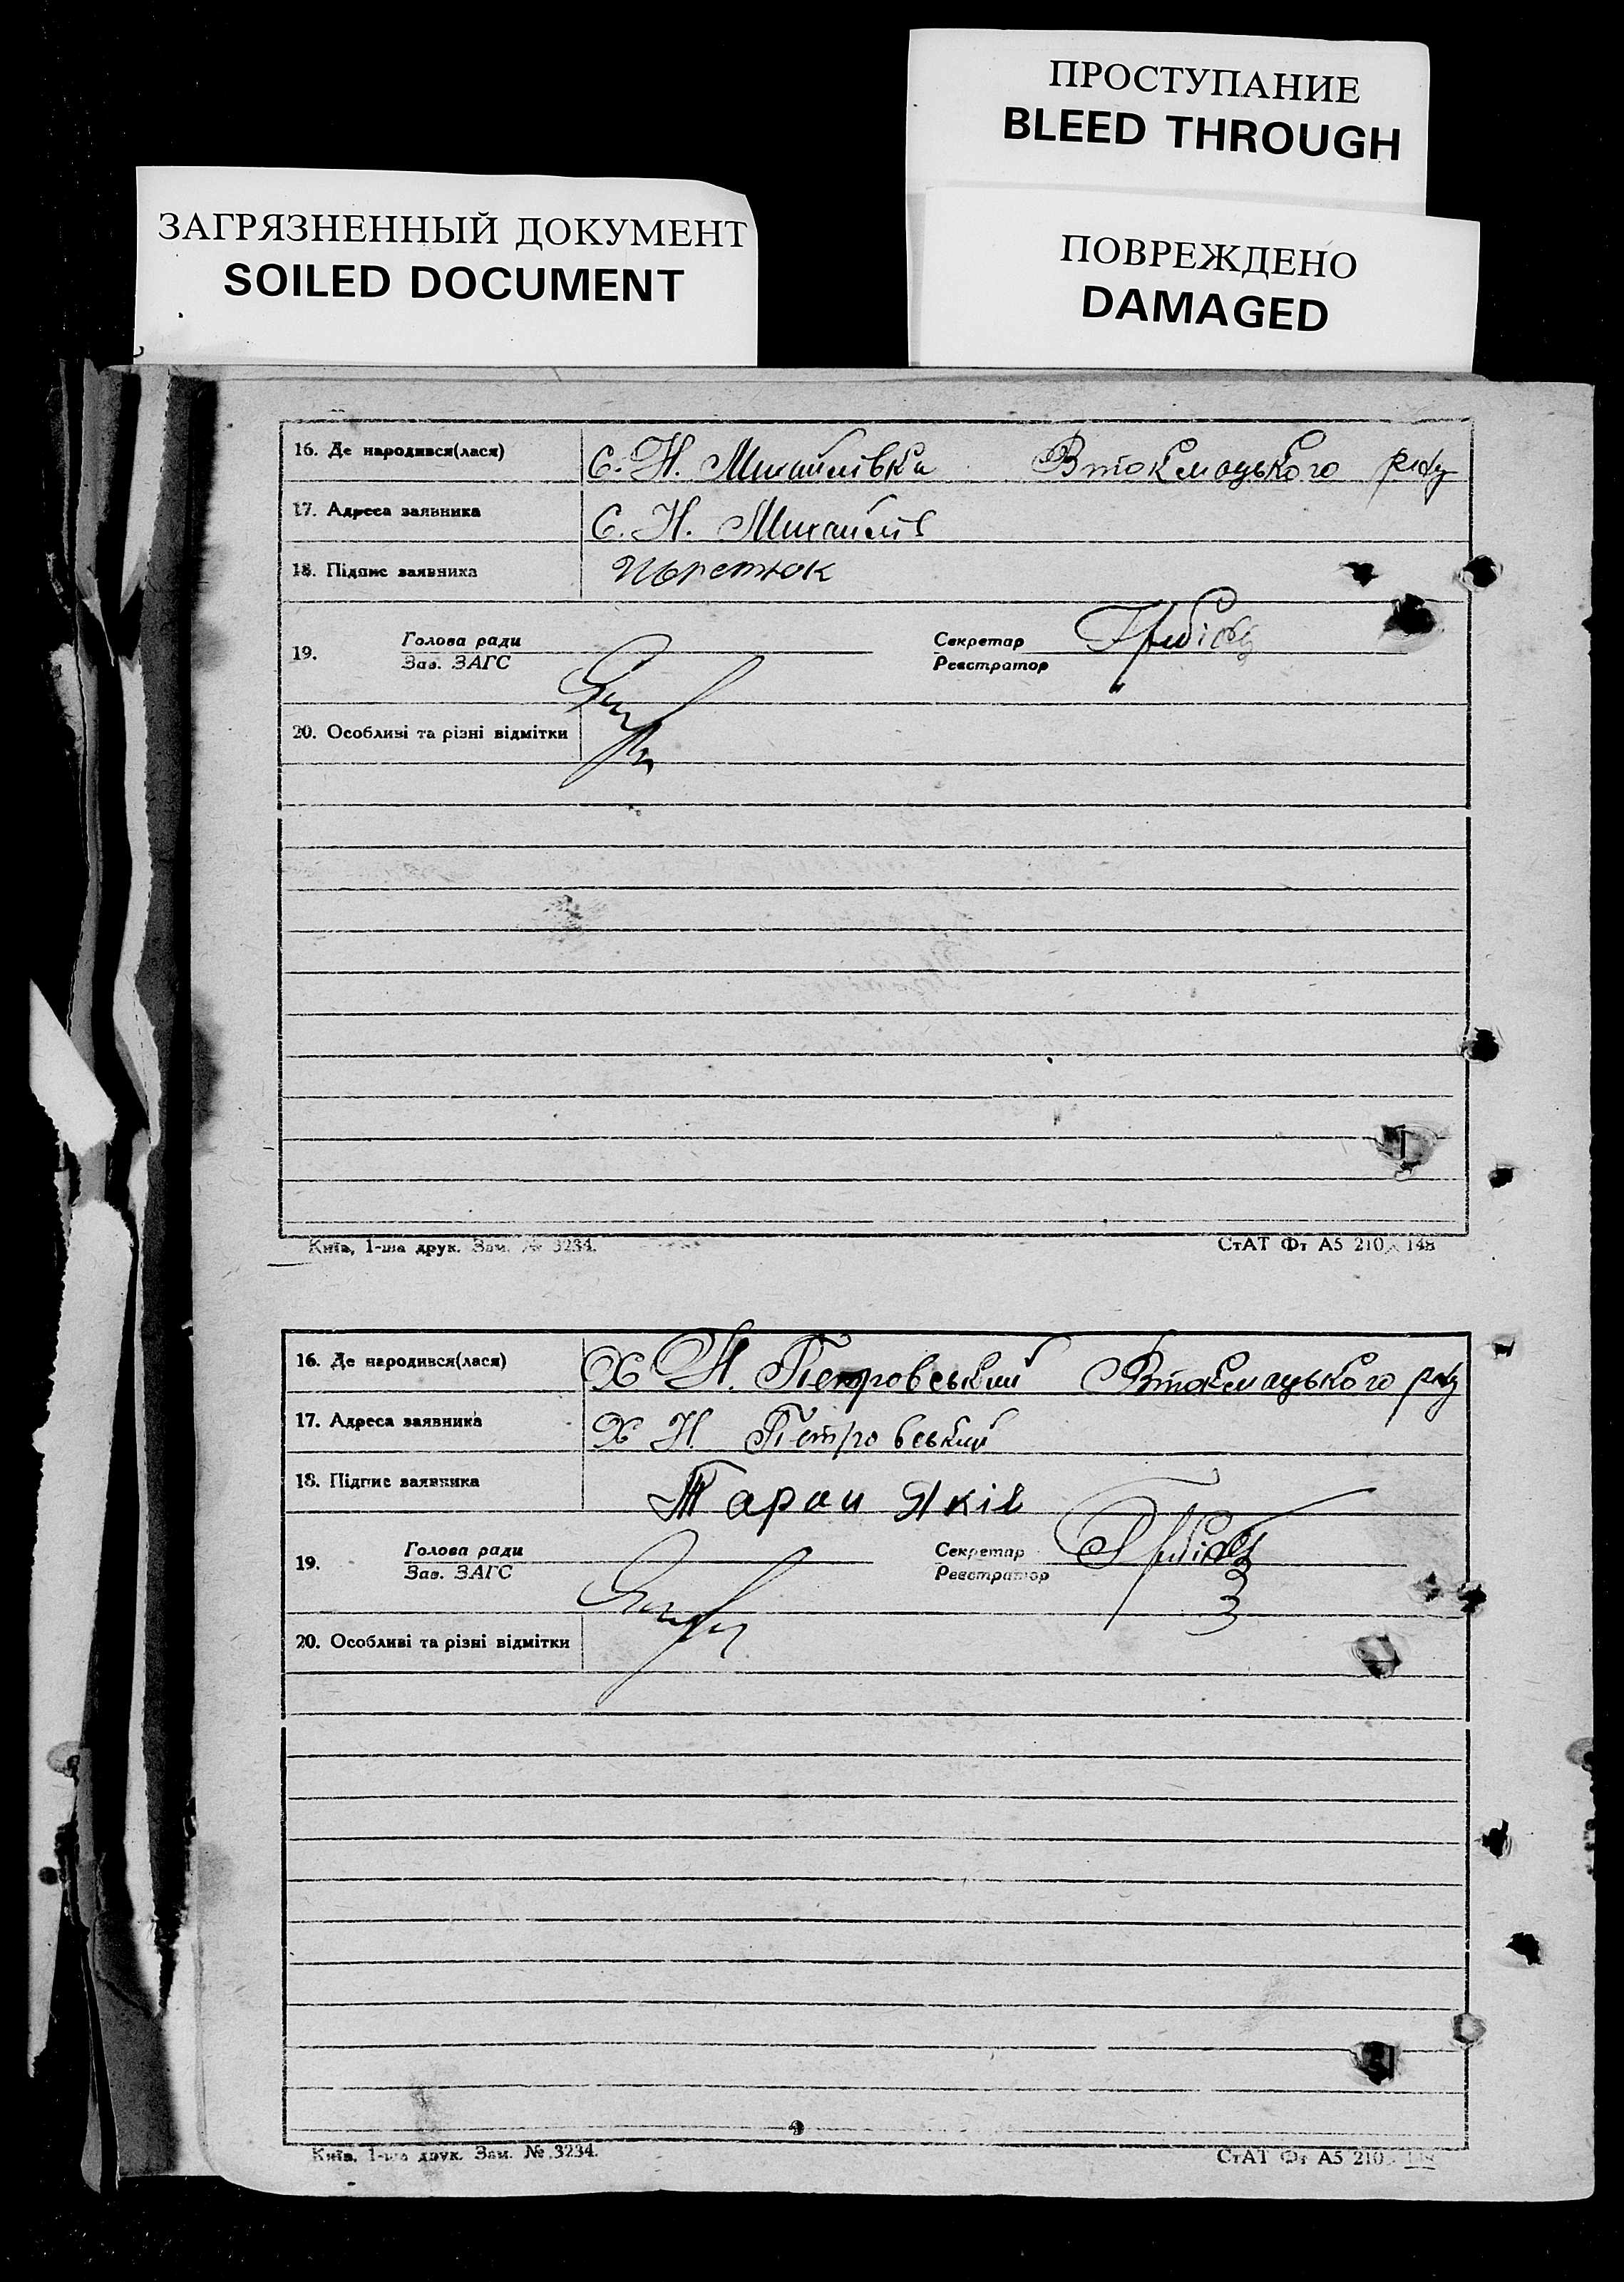 ПРОСТУПАНИЕ
BLEED THROUGH
ЗАГРЯЗНЕННЫЙ ДОКУМЕНТ
SOILED DOCUMENT
ПОВРЕЖДЕНО
DAMAGED
16. Де народився(лася) С. Н. Михайлівка Втокмацького р-ну
17. Адреса заявника С. Н. Михайлів
18. Підпис заявника
19. Голова ради Секретар
Зав. ЗАГС Реєстратор
20. Особливі та різні відмітки
Київ, 1-ша друк. Зам. № 3234. СтАТ Фт А5 210 × 148
16. Де народився(лася) Х Н. Петровський Втокмацького р-ну
17. Адреса заявника Х Н Петровський
18. Підпис заявника Таран Яків
19. Голова ради Секретар
Зав. ЗАГС Реєстратор
20. Особливі та різні відмітки
Київ, 1-ша друк. Зам. № 3234. СтАТ Фт А5 210 × 148